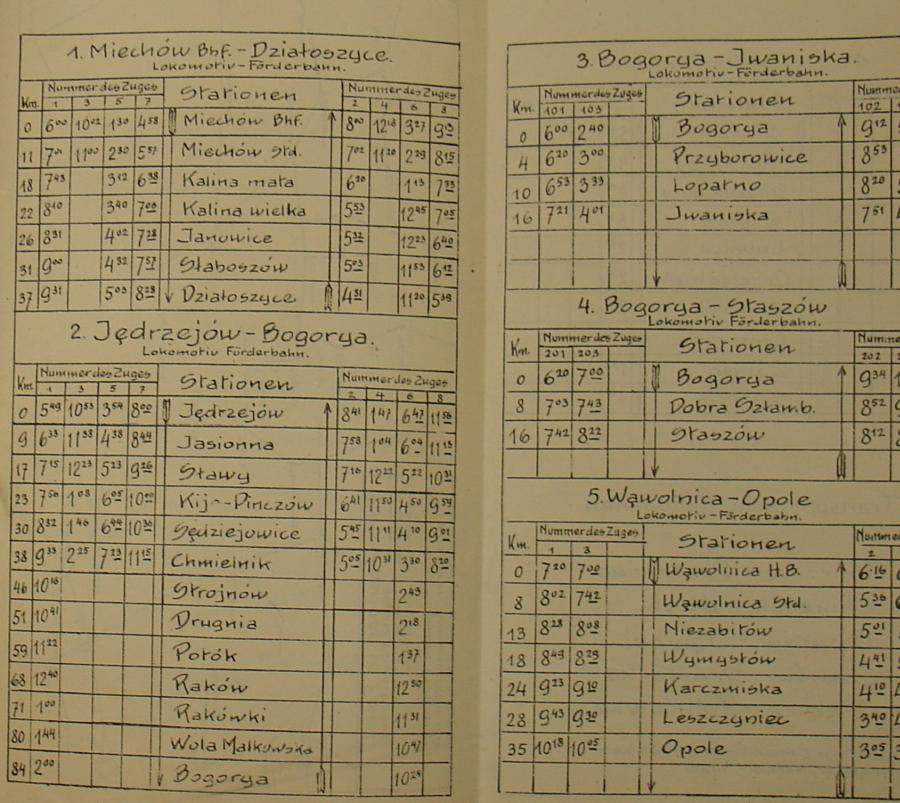 1. Miechów Bhf. – Działoszyce.
Lokomotiv-Förderbahn.
Km. Nummer des Zuges Stationen Nummer des Zuges
1 3 5 7 2 4 6 8
0 6 00 10 02 1 30 4 58 Miechów Bhf. 8 00 3 27
11 11 00 2 30 5 57 Miechów Std. 7 02 11 20 2 29 8 15
18 7 43 3 12 6 38 Kalina mała 6 20 1 13 7 23
22 8 10 3 40 7 00 Kalina wielka 5 53 12 45 7 05
26 8 31 4 02 7 28 Janowice 5 32 12 23 6 40
31 9 00 4 32 7 57 Słaboszów 5 03 11 53 6 12
37 9 31 5 03 8 28 Działoszyce 4 31 11 20 5 39
2. Jędrzejów – Bogorya.
Lokomotiv Förderbahn.
Km. Nummer des Zuges Stationen Nummer des Zuges
1 3 5 7 2 4 6 8
0 5 49 10 53 3 54 8 00 Jędrzejów 8 41 1 47 6 47 11 56
9 6 33 11 38 4 38 8 44 Jasionna 7 58 1 04 6 04 11 13
17 7 15 12 23 5 23 9 26 Sławy 7 16 12 22 5 22 10 31
23 7 50 1 08 6 05 10 00 Kij-Pinczów 6 41 11 50 4 50 9 59
30 8 32 1 46 6 44 10 30 Sędziejowice 5 45 11 11 4 10 9 01
38 9 33 2 25 7 23 11 15 Chmielnik 5 05 10 31 3 30 8 20
46 10 16 Strojnów 2 43
51 10 41 Drugnia 2 18
59 11 22 Potók 1 37
68 12 40 Raków 12 50
71 1 00 Rakówki 11 31
80 1 44 Wola Małkowska 10 47
84 2 00 Bogorya 10 29
3. Bogorya – Jwaniska.
Lokomotiv-Förderbahn.
Km. Nummer des Zuges Stationen
101 103 102
0 6 00 2 40 Bogorya 9 12
4 6 20 3 00 Przyborowice 8 53
10 6 53 3 33 Łopatno 8 20
16 7 21 4 01 Jwaniska 7 51
4. Bogorya – Staszów
Lokomotiv Förderbahn.
Km. Nummer des Zuges Stationen
201 203 202
0 6 20 7 00 Bogorya 9 34
8 7 03 7 43 Dobra Szlamb. 8 52
16 7 42 8 22 Staszów 8 12
5. Wąwolnica – Opole
Lokomotiv-Förderbahn.
Km. Nummer des Zuges Stationen
1 3 2
0 7 20 7 00 Wąwolnica H.B. 6 16
8 8 02 7 42 Wąwolnica Std. 5 36
13 8 28 8 08 Niezabitów 5 01
18 8 49 8 29 Wymysłów 4 41
24 9 23 9 10 Karczmiska 4 10
28 9 43 9 30 Leszczyniec 3 40
35 10 18 10 05 Opole 3 05